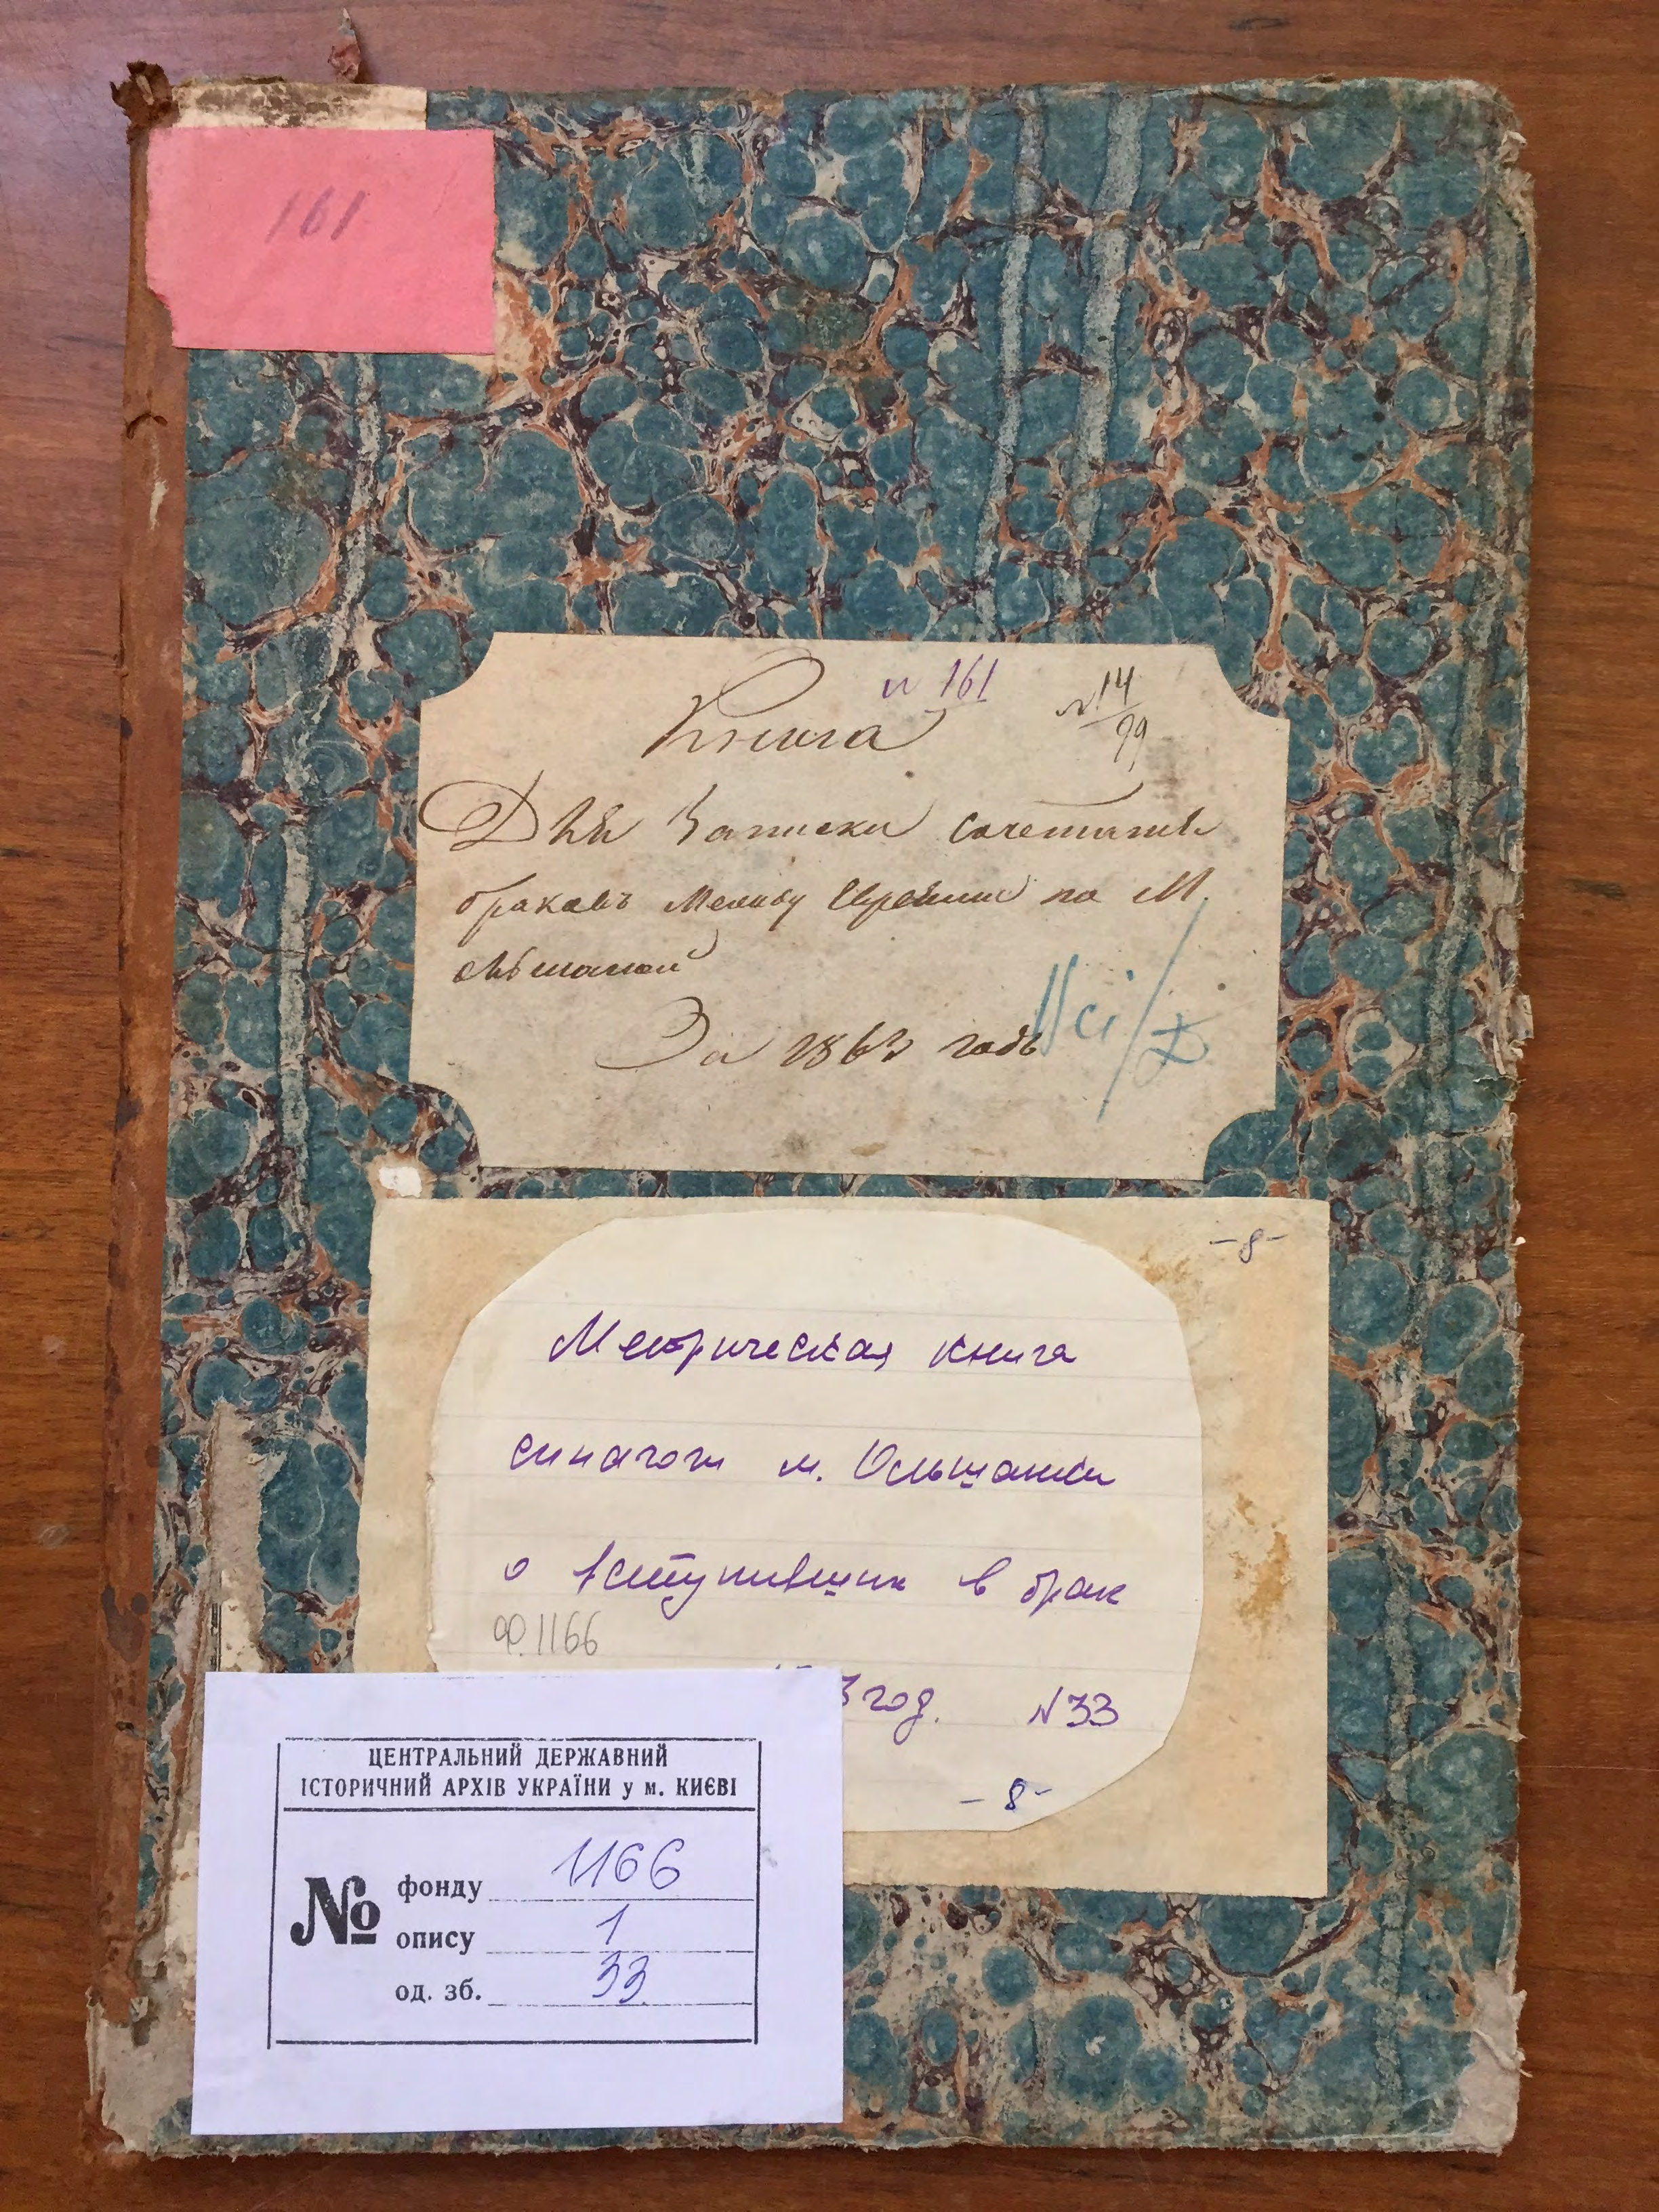 161
№ 161
№ 14/99
Книга
Для Записки сочетания
браковъ Между Евреями по М.
За 1863 годъ
-8-
Метрическая книга
синагоги м. Ольшаны
о вступивших в брак
ф. 1166
3 год. N33
-8-
ЦЕНТРАЛЬНИЙ ДЕРЖАВНИЙ
ІСТОРИЧНИЙ АРХІВ УКРАЇНИ у м. КИЄВІ
№
фонду 1166
опису 1
од. зб. 33